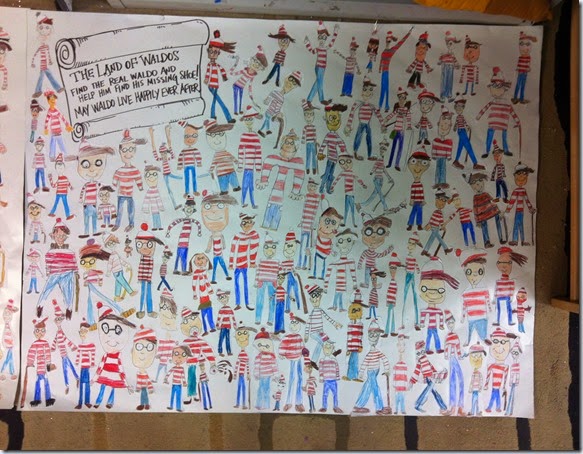 THE LAND OF WALDOS
FIND THE REAL WALDO AND
HELP HIM FIND HIS MISSING SHOE!
MAY WALDO LIVE HAPPILY EVER AFTER